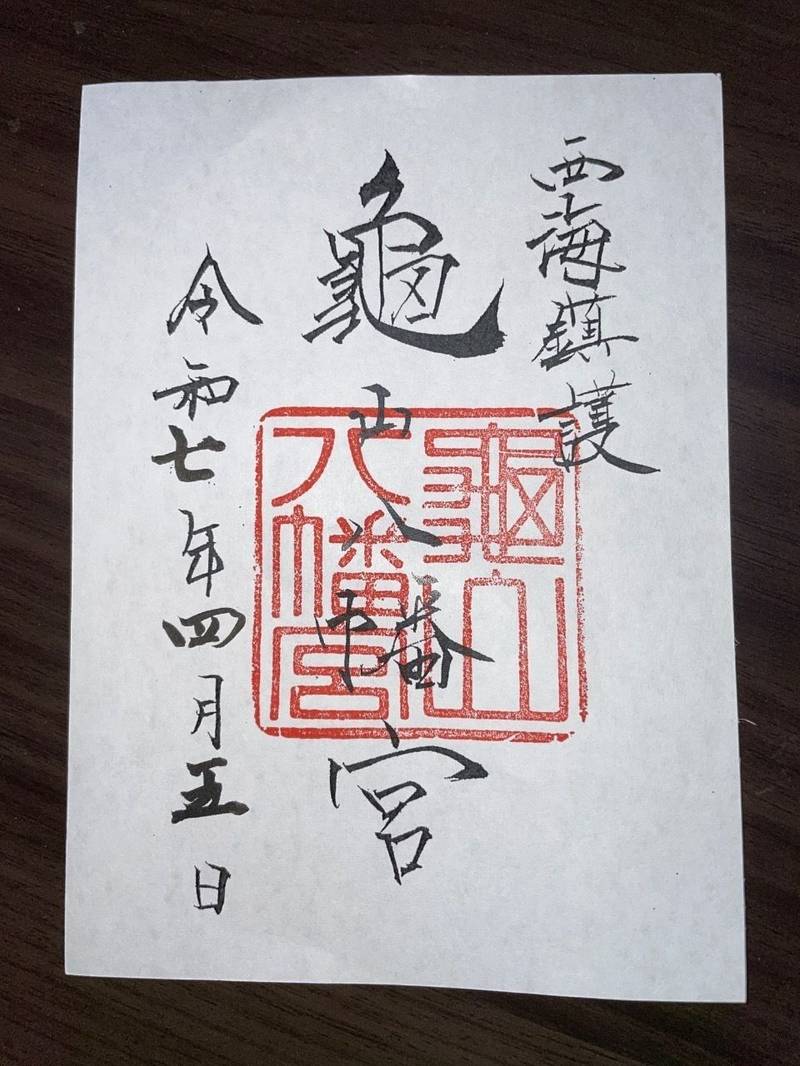 西海鎮護
龜山八幡宮
龜山
八幡宮
令和七年四月五日